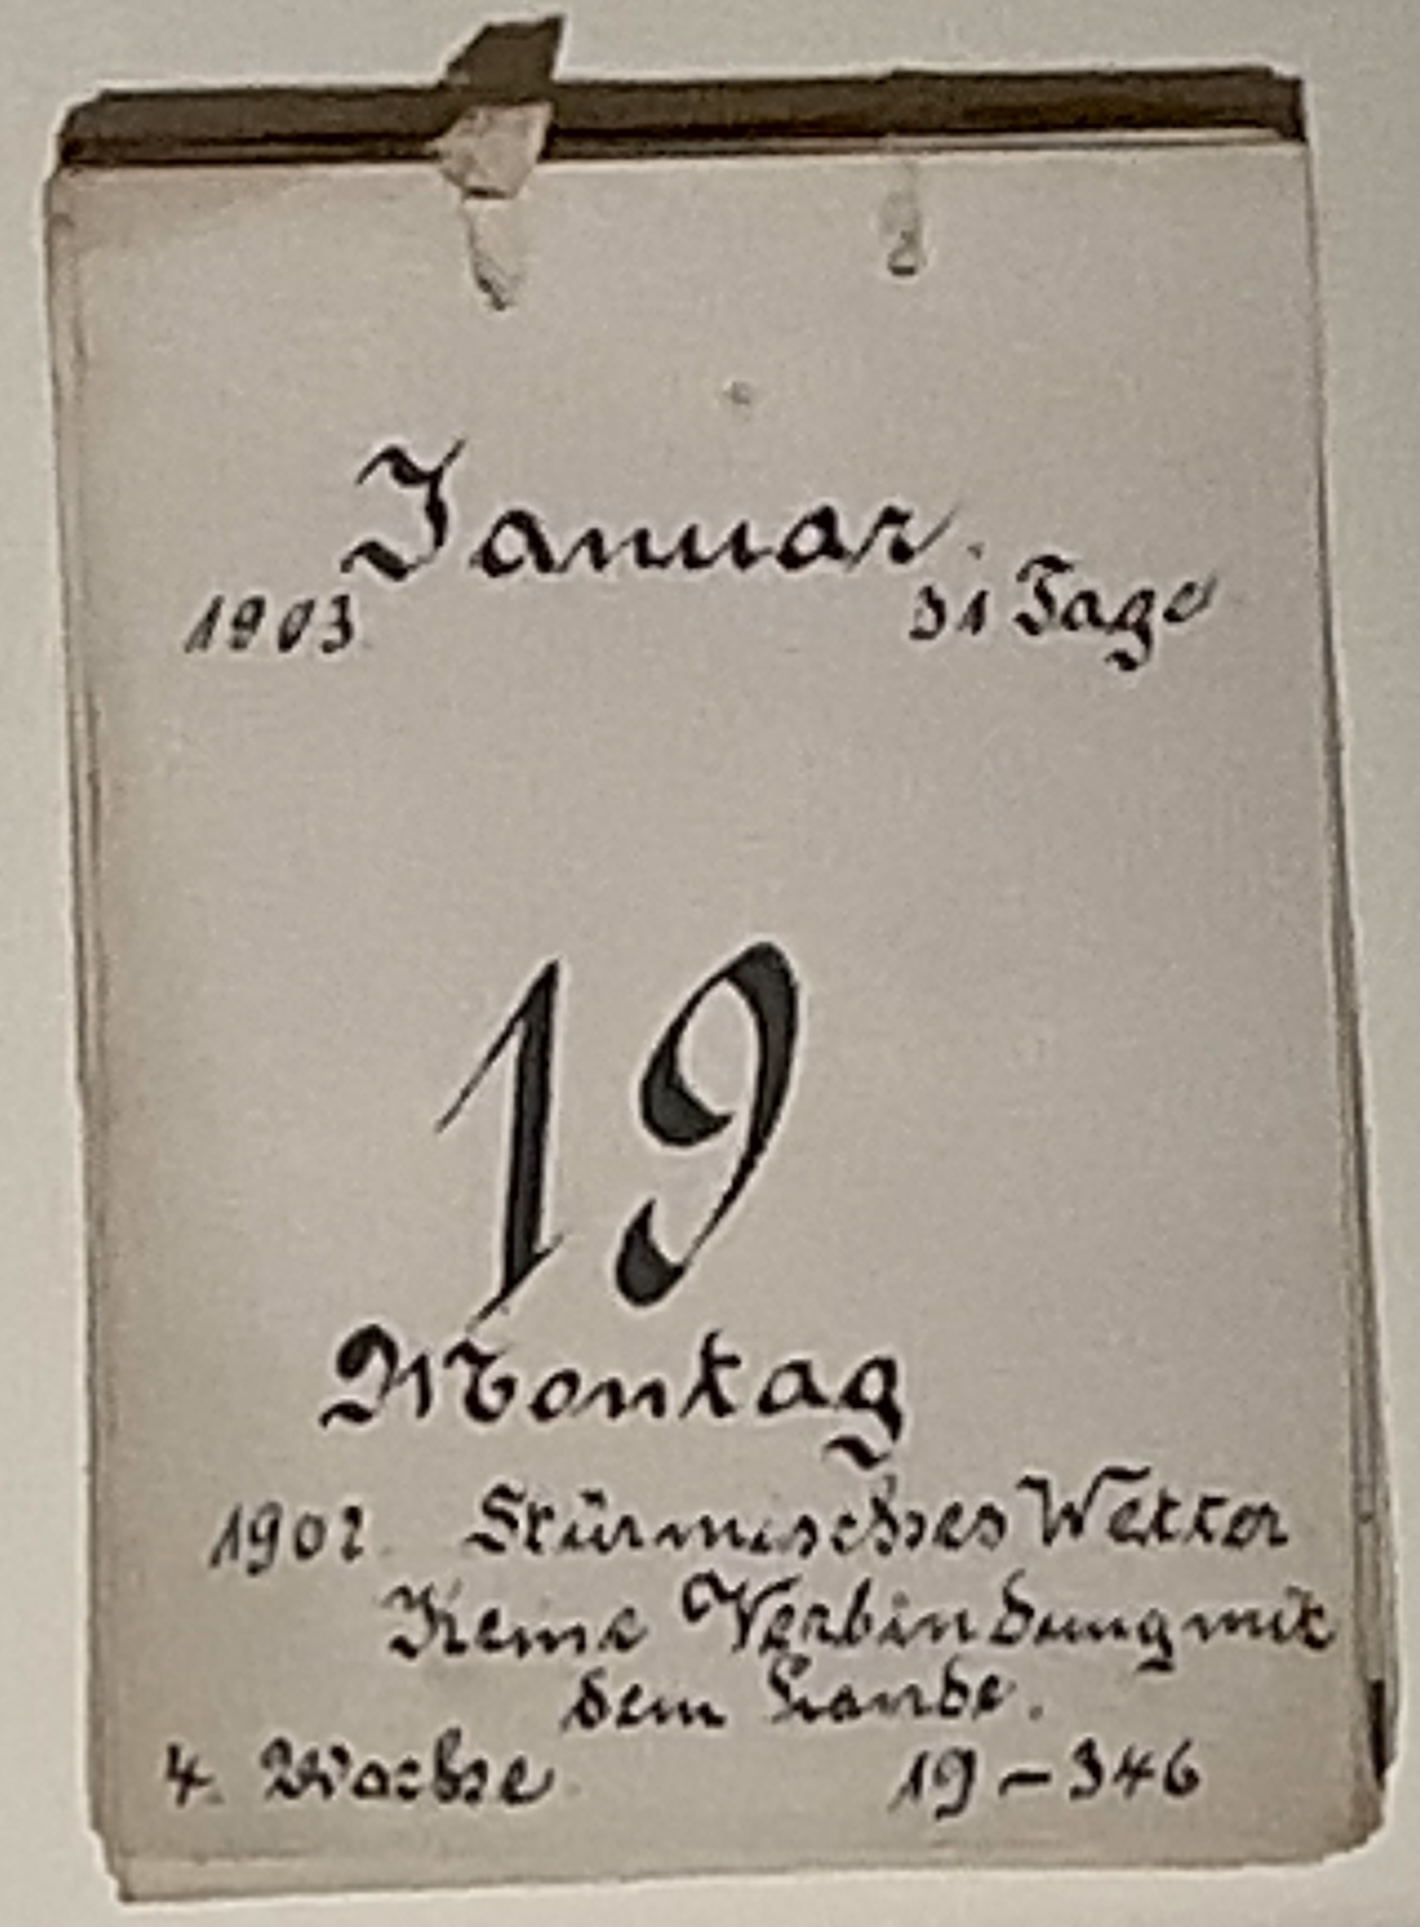 Januar.
1903. 31 Tage
19
Montag
1902. Stürmisches Wetter
Keine Verbindung mit
dem Lande.
4. Woche 19 – 346